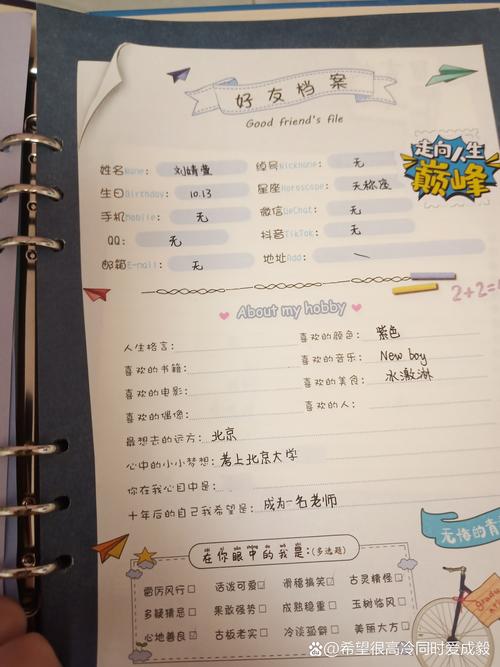 好友档案
Good friend's file
走向人生
巅峰
姓名Name: 刘婧萱 绰号Nickname: 无
生日Birthday: 10.13 星座Horoscope: 天秤座
手机Mobile: 无 微信WeChat: 无
QQ: 无 抖音TikTok: 无
邮箱E-mail: 无 地址Add: \
2+2=
About my hobby
人生格言: 喜欢的颜色: 紫色
喜欢的书籍: 喜欢的音乐: New boy
喜欢的电影: 喜欢的美食: 冰激淋
喜欢的偶像: 喜欢的人:
最想去的远方: 北京
心中的小小梦想: 考上北京大学
你在我心目中是:
十年后的自己我希望是: 成为一名老师
无悔的青
在你眼中的我是:(多选题)
雷厉风行□ 活泼可爱☑ 滑稽搞笑☑ 古灵精怪□
多疑猜忌□ 果敢强势□ 成熟稳重□ 玉树临风□
心地善良☑ 古板老实□ 冷淡孤僻□ 美丽大方□
@希望很高冷同时爱成毅